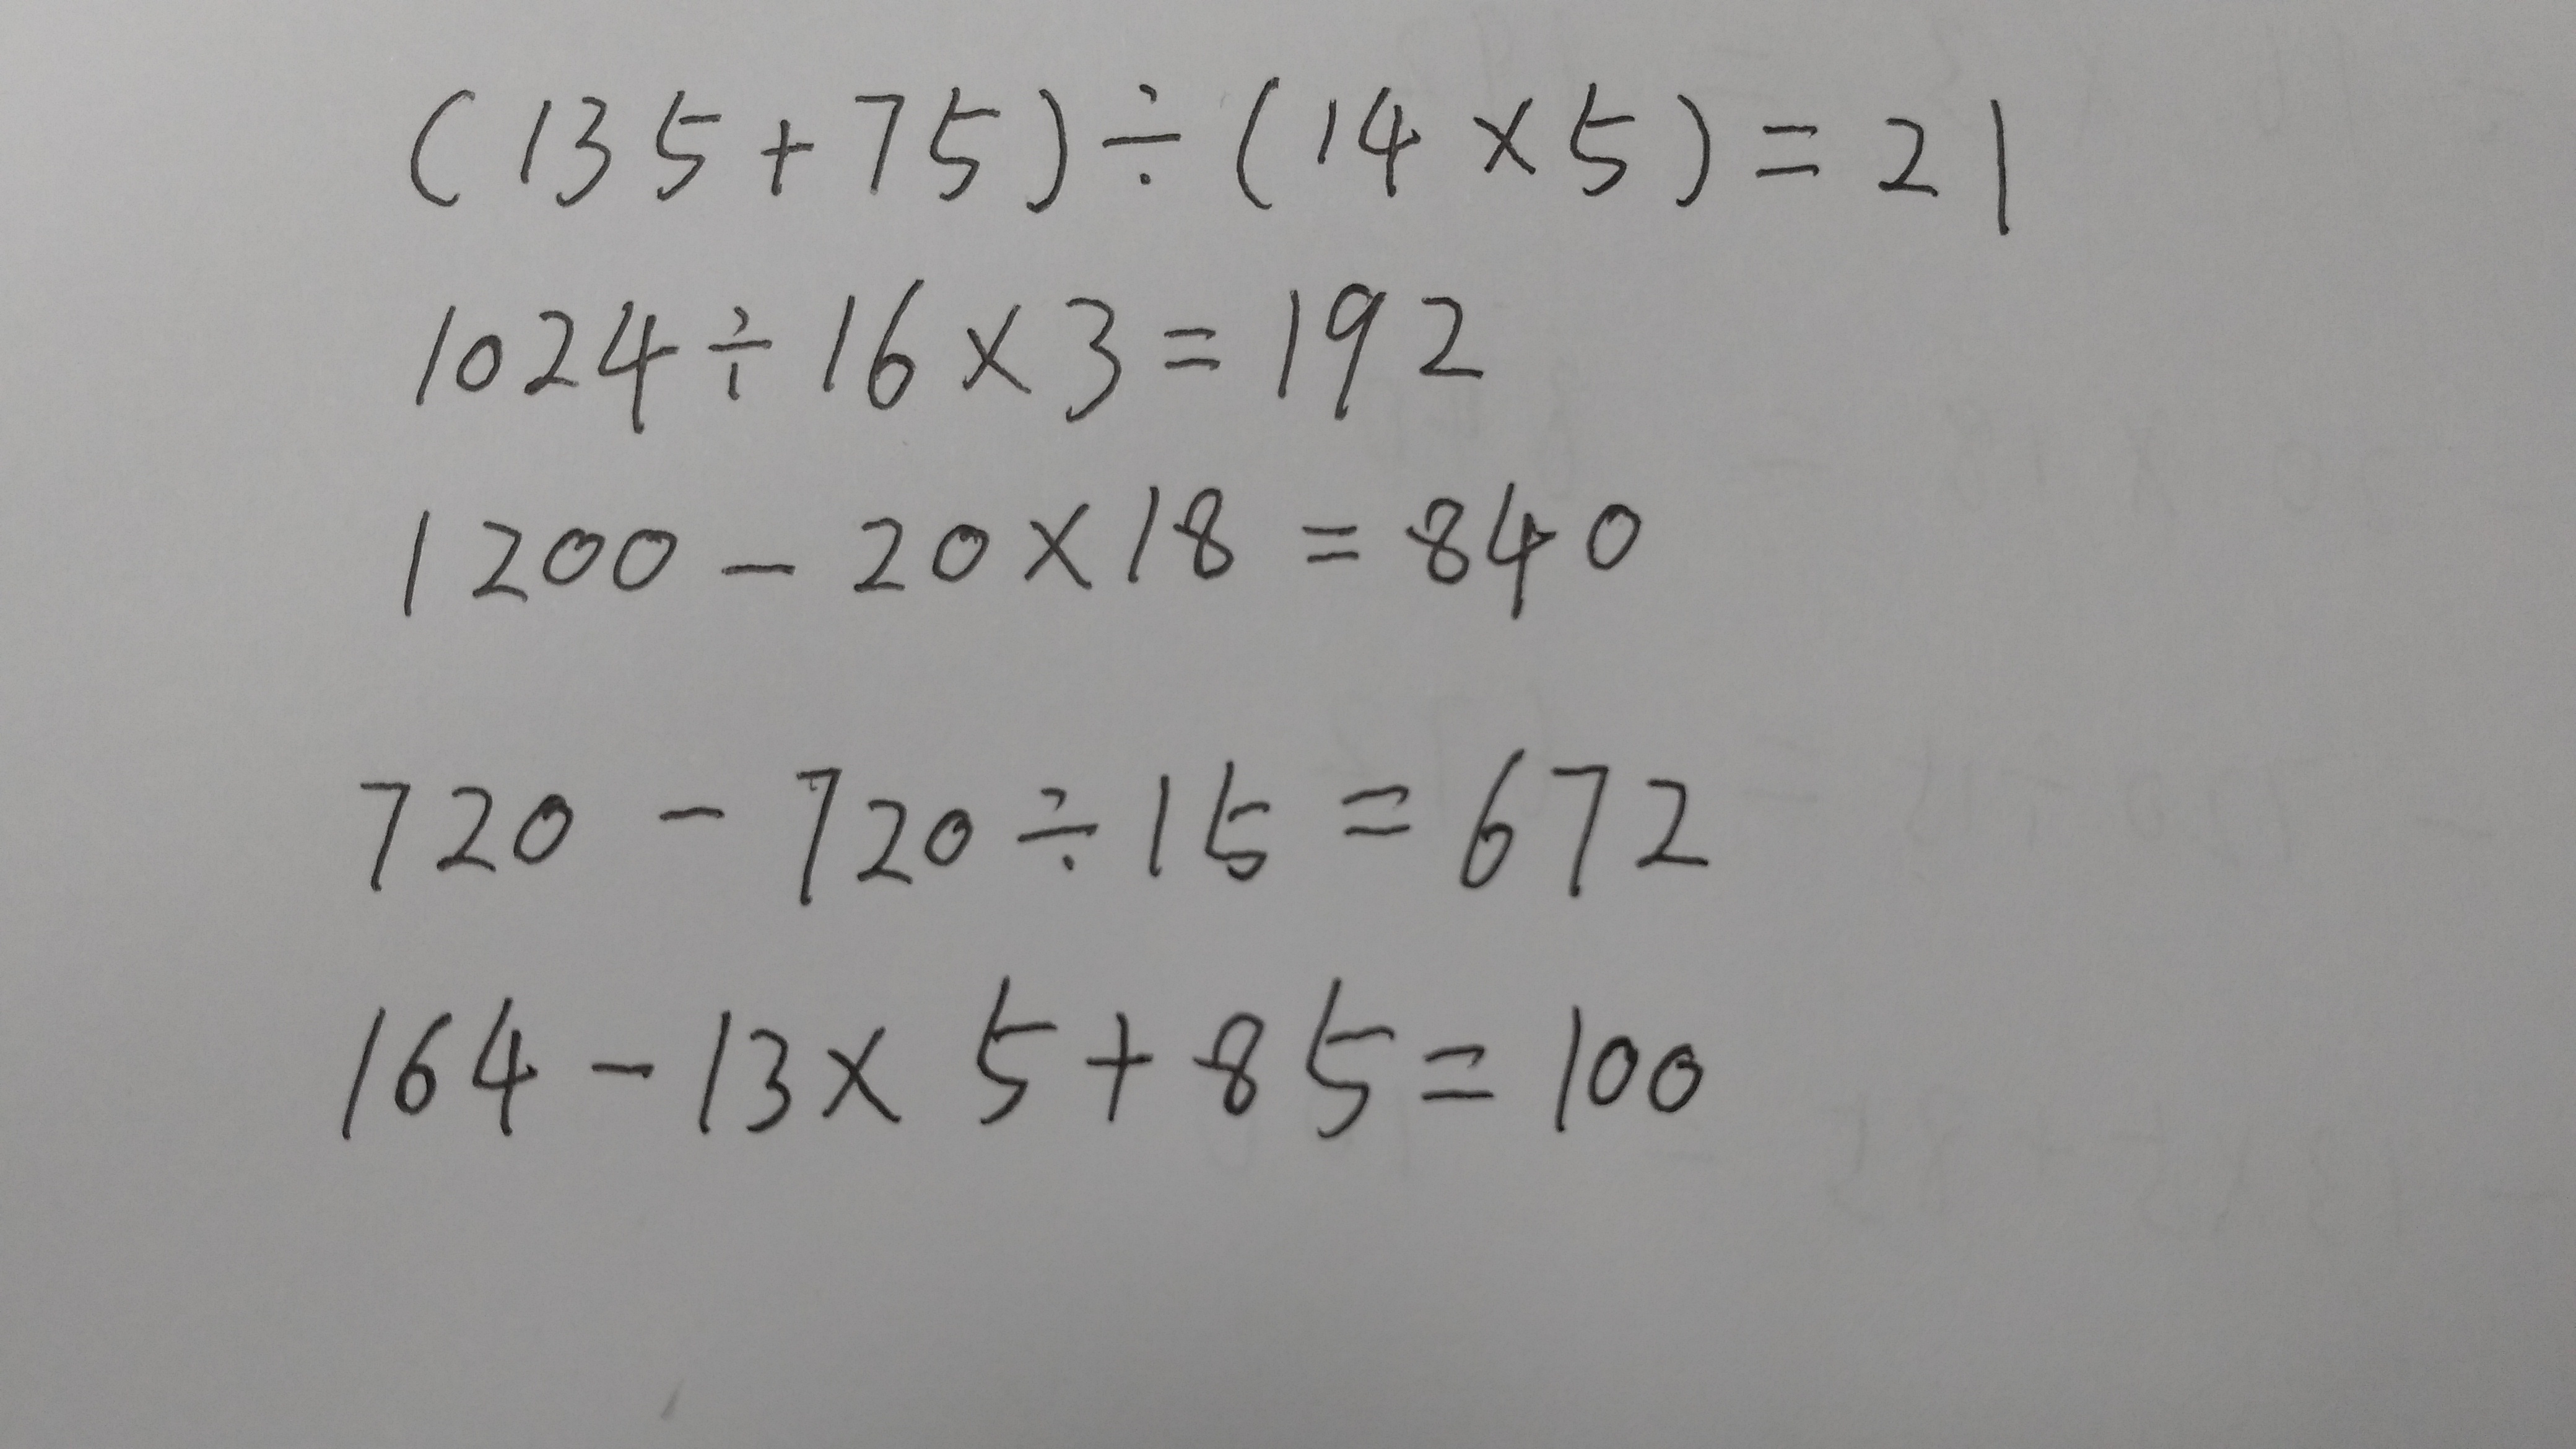 (135+75)÷(14×5)=21
1024÷16×3=192
1200-20×18=840
720-720÷15=672
164-13×5+85=100